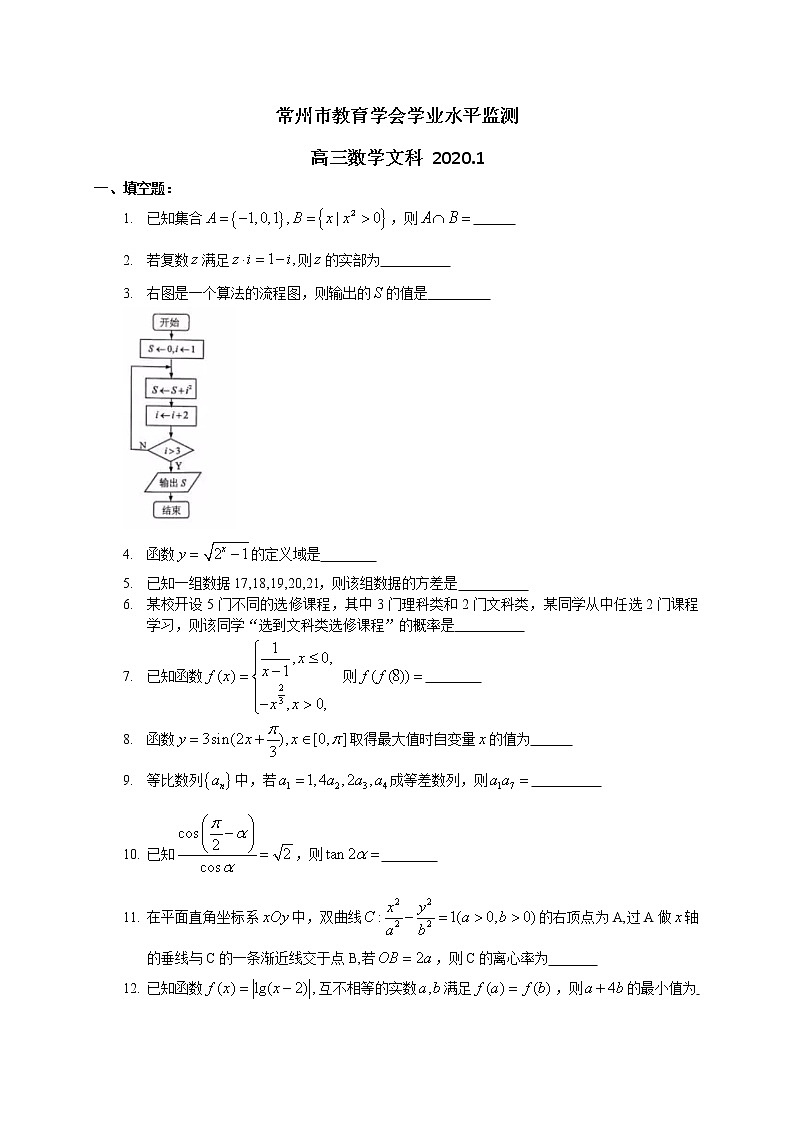 常州市教育学会学业水平监测
高三数学文科 2020.1
一、填空题:
1. 已知集合 A={-1,0,1}, B={x|x²>0},则 A∩B=______
2. 若复数 z 满足 z·i=1-i,则 z 的实部为______
3. 右图是一个算法的流程图,则输出的 S 的值是______
开始
S←0,i←1
S←S+i²
i←i+2
N
i>3
Y
输出 S
结束
4. 函数 y=√(2^x-1) 的定义域是______
5. 已知一组数据 17,18,19,20,21,则该组数据的方差是______
6. 某校开设 5 门不同的选修课程,其中 3 门理科类和 2 门文科类,某同学从中任选 2 门课程
学习,则该同学“选到文科类选修课程”的概率是______
7. 已知函数 f(x)={1/(x-1),x≤0, -x^(2/3),x>0, 则 f(f(8))=______
8. 函数 y=3sin(2x+π/3),x∈[0,π]取得最大值时自变量 x 的值为______
9. 等比数列{aₙ}中,若 a₁=1,4a₂,2a₃,a₄成等差数列,则 a₁a₇=______
10. 已知 cos(π/2-α)/cosα=√2,则 tan 2α=______
11. 在平面直角坐标系 xOy 中,双曲线 C:x²/a²-y²/b²=1(a>0,b>0) 的右顶点为 A,过 A 做 x 轴
的垂线与 C 的一条渐近线交于点 B,若 OB=2a,则 C 的离心率为______
12. 已知函数 f(x)=|lg(x-2)|,互不相等的实数 a,b 满足 f(a)=f(b),则 a+4b 的最小值为_